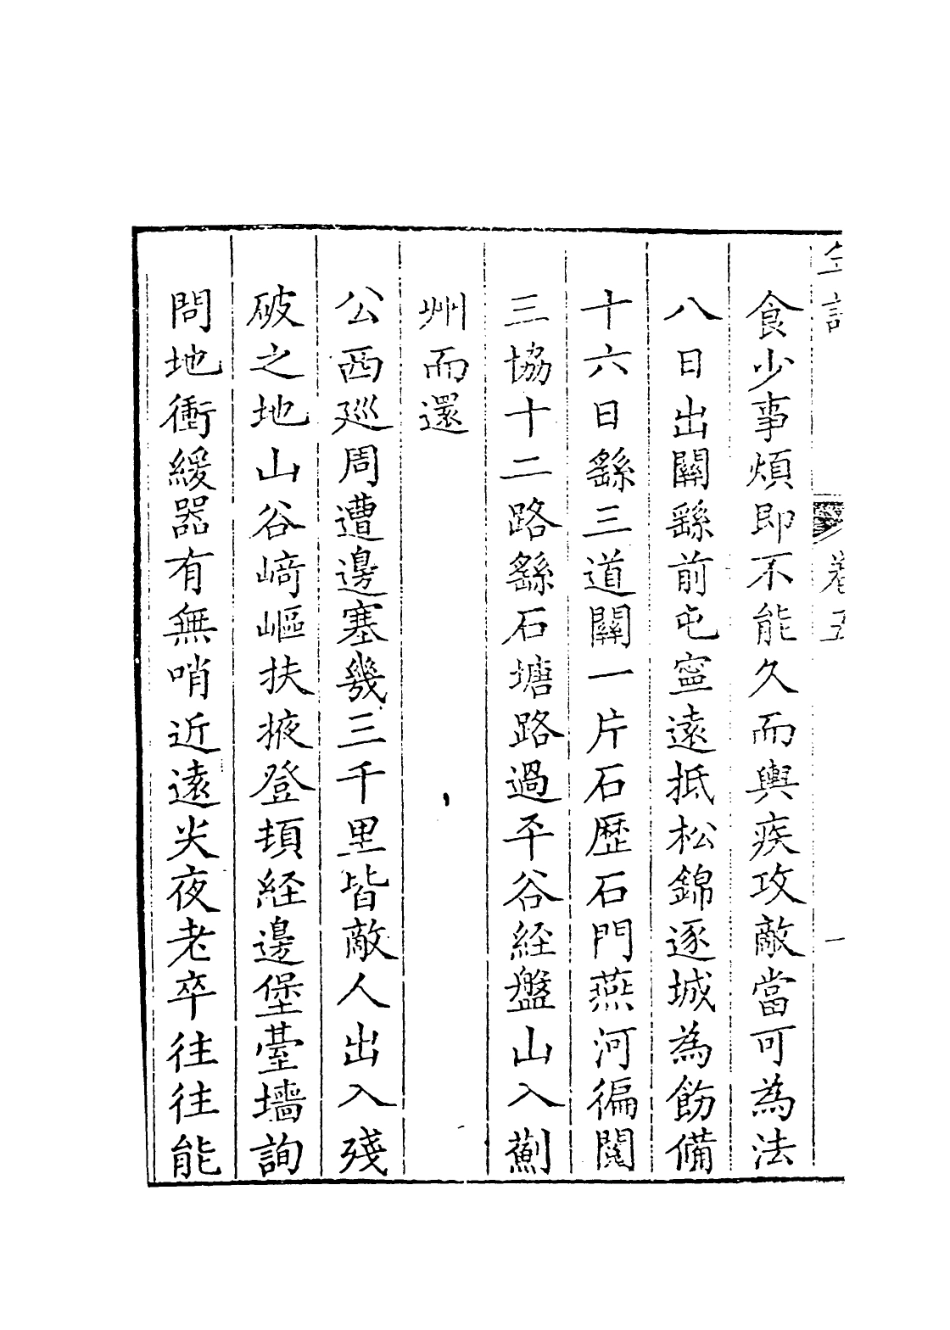 食少事煩即不能久而輿疾攻敵當可為法
八日出關繇前屯寧遠抵松錦逐城為飭備
十六日繇三道關一片石歷石門燕河徧閱
三協十二路繇石塘路過平谷経盤山入薊
州而還
公西廵周遭邊塞幾三千里皆敵人出入殘
破之地山谷崎嶇扶掖登頓経邊堡臺墻詢
問地衝緩噐有無哨近遠尖夜老卒往往能